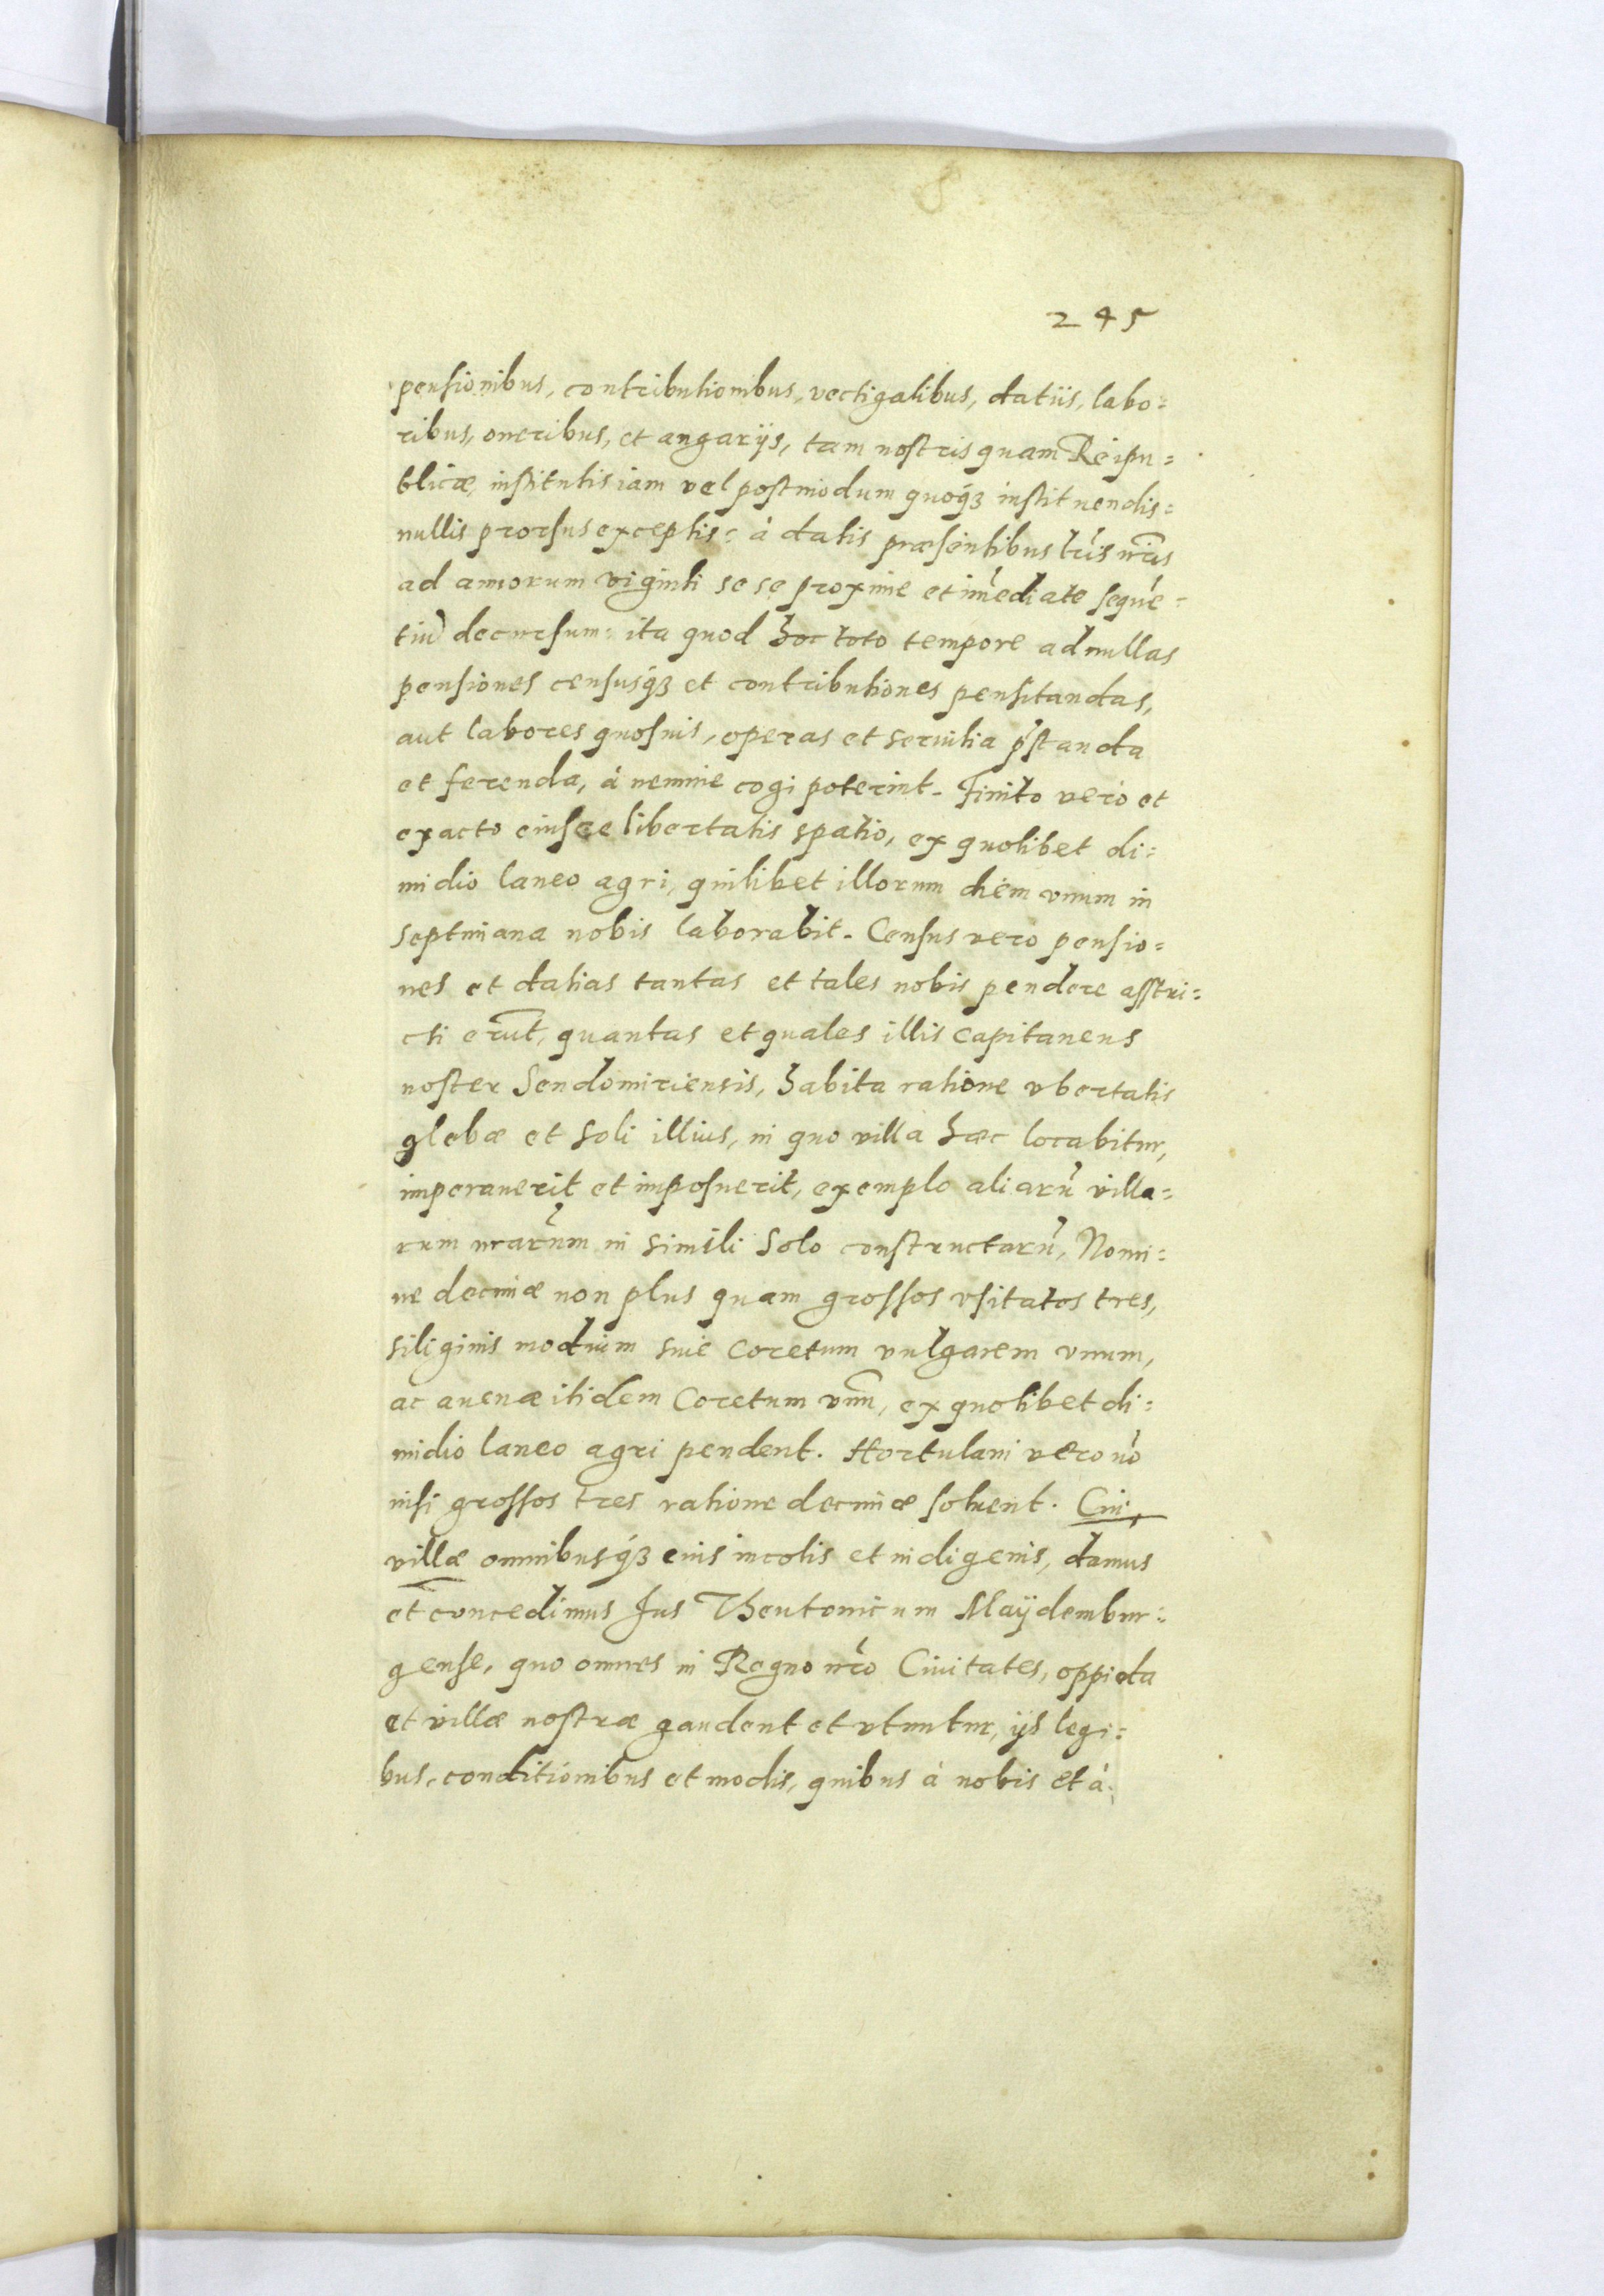 245
pensionibus, contributionibus, vectigalibus, datiis, labo=
ribus, oneribus, et angarijs, tam nostris quam Reipu=
blicæ, institutis iam vel postmodum quoqȝ instituendis=
nullis prorsus exceptis: à datis præsentibus lr̃is nr̃is
ad annorum viginti se se proxime et im̃ediate sequẽ=
tiũ decursum: ita quod hoc toto tempore ad nullas
pensiones censusqȝ et contributiones pensitandas,
aut labores quosuis, operas et seruitia p̃standa
et ferenda, à nemine cogi poterint. Finito vero et
exacto eiusce libertatis spatio, ex quolibet di=
midio laneo agri, quilibet illorum diem vnum in
septimana nobis laborabit. Census vero pensio=
nes et datias tantas et tales nobis pendere asstri=
cti erũt, quantas et quales illis Capitaneus
noster Sendomiriensis, habita ratione vbertatis
glebæ et soli illius, in quo villa hæc locabitur,
imperauerit et imposuerit, exemplo aliarũ villa=
rum nr̃arum in simili solo constructarũ, Nomi=
ne decimæ non plus quam grossos vsitatos tres,
siliginis modium siue Coretum vulgarem vnum,
ac auenæ itidem Coretum vnũ, ex quolibet di=
midio laneo agri pendent. Hortulani vero nõ
nisi grossos tres ratione decimæ soluent. Cui,
villæ omnibusqȝ eius incolis et indigenis, damus
et concedimus Jus Theutonicum Maÿdembur=
gense, quo omnes in Regno nr̃o Ciuitates, oppida
et villæ nostræ gaudent et vtuntur, ijs legi=
bus, conditionibus et modis, quibus à nobis et à